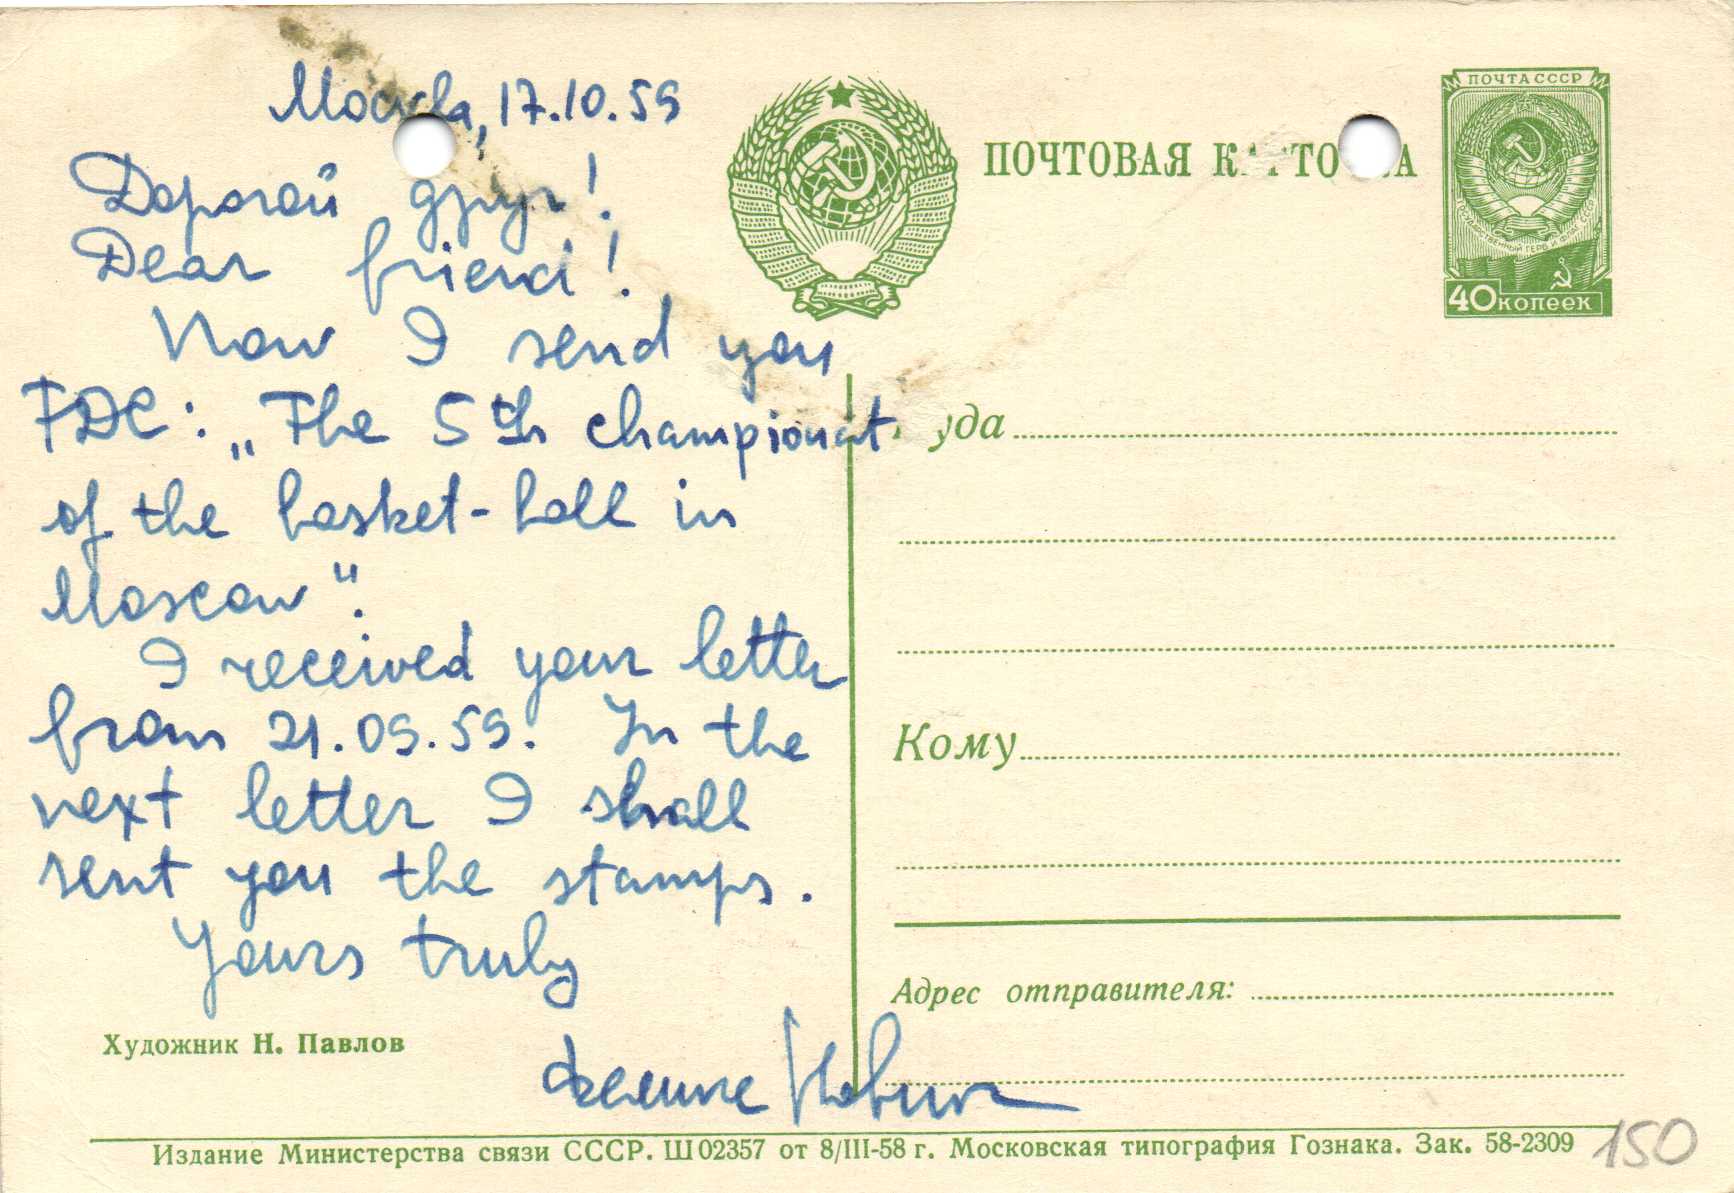 Москва, 17.10.59
Дорогой друг!
Dear friend!
Now I send you
FDC: „The 5th championat
of the basket-ball in
Moscow".
I received your letter
from 21.09.59. In the
next letter I shall
sent you the stamps.
Yours truly
Художник Н. Павлов
ПОЧТОВАЯ
ПОЧТА СССР
40 КОПЕЕК
Кому
Адрес отправителя:
Издание Министерства связи СССР. Ш 02357 от 8/III-58 г. Московская типография Гознака. Зак. 58-2309
150